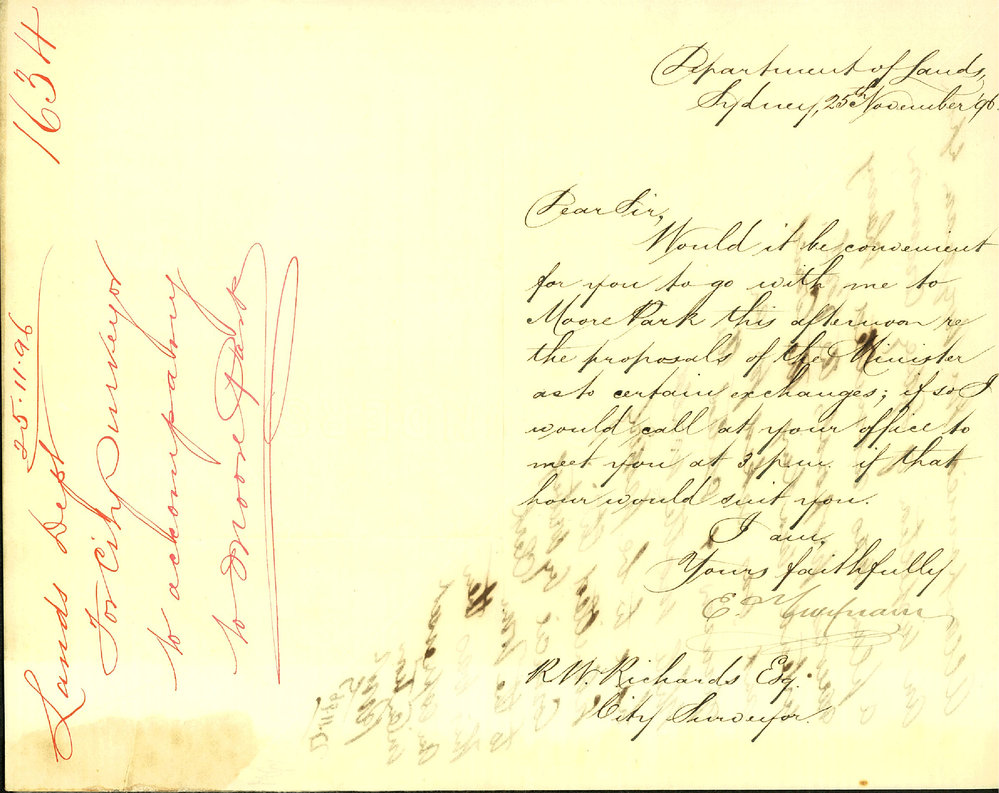 1634
Lands Dept 25.11.96
For City Surveyor
to ackompany
to Moore Park
Department of Lands,
Sydney, 25th November /96.
Dear Sir,
Would it be convenient
for you to go with me to
Moore Park this afternoon re
the proposals of the Minister
as to certain exchanges; if so I
would call at your office to
meet you at 3 p.m. if that
hour would suit you.
I am,
Yours faithfully
E.
R.W. Richards Esq.
City Surveyor.